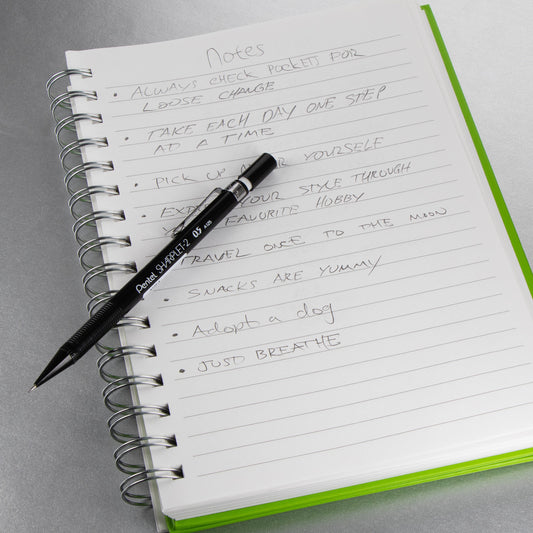 Notes
• ALWAYS CHECK POCKETS FOR
LOOSE CHANGE
• TAKE EACH DAY ONE STEP
AT A TIME
• PICK UP YOURSELF
• YOUR STYLE THROUGH
FAVORITE HOBBY
TRAVEL ONCE TO THE MOON
• SNACKS ARE YUMMY
• Adopt a dog
• JUST BREATHE
Pentel SHARPLET-2 0.5 A125